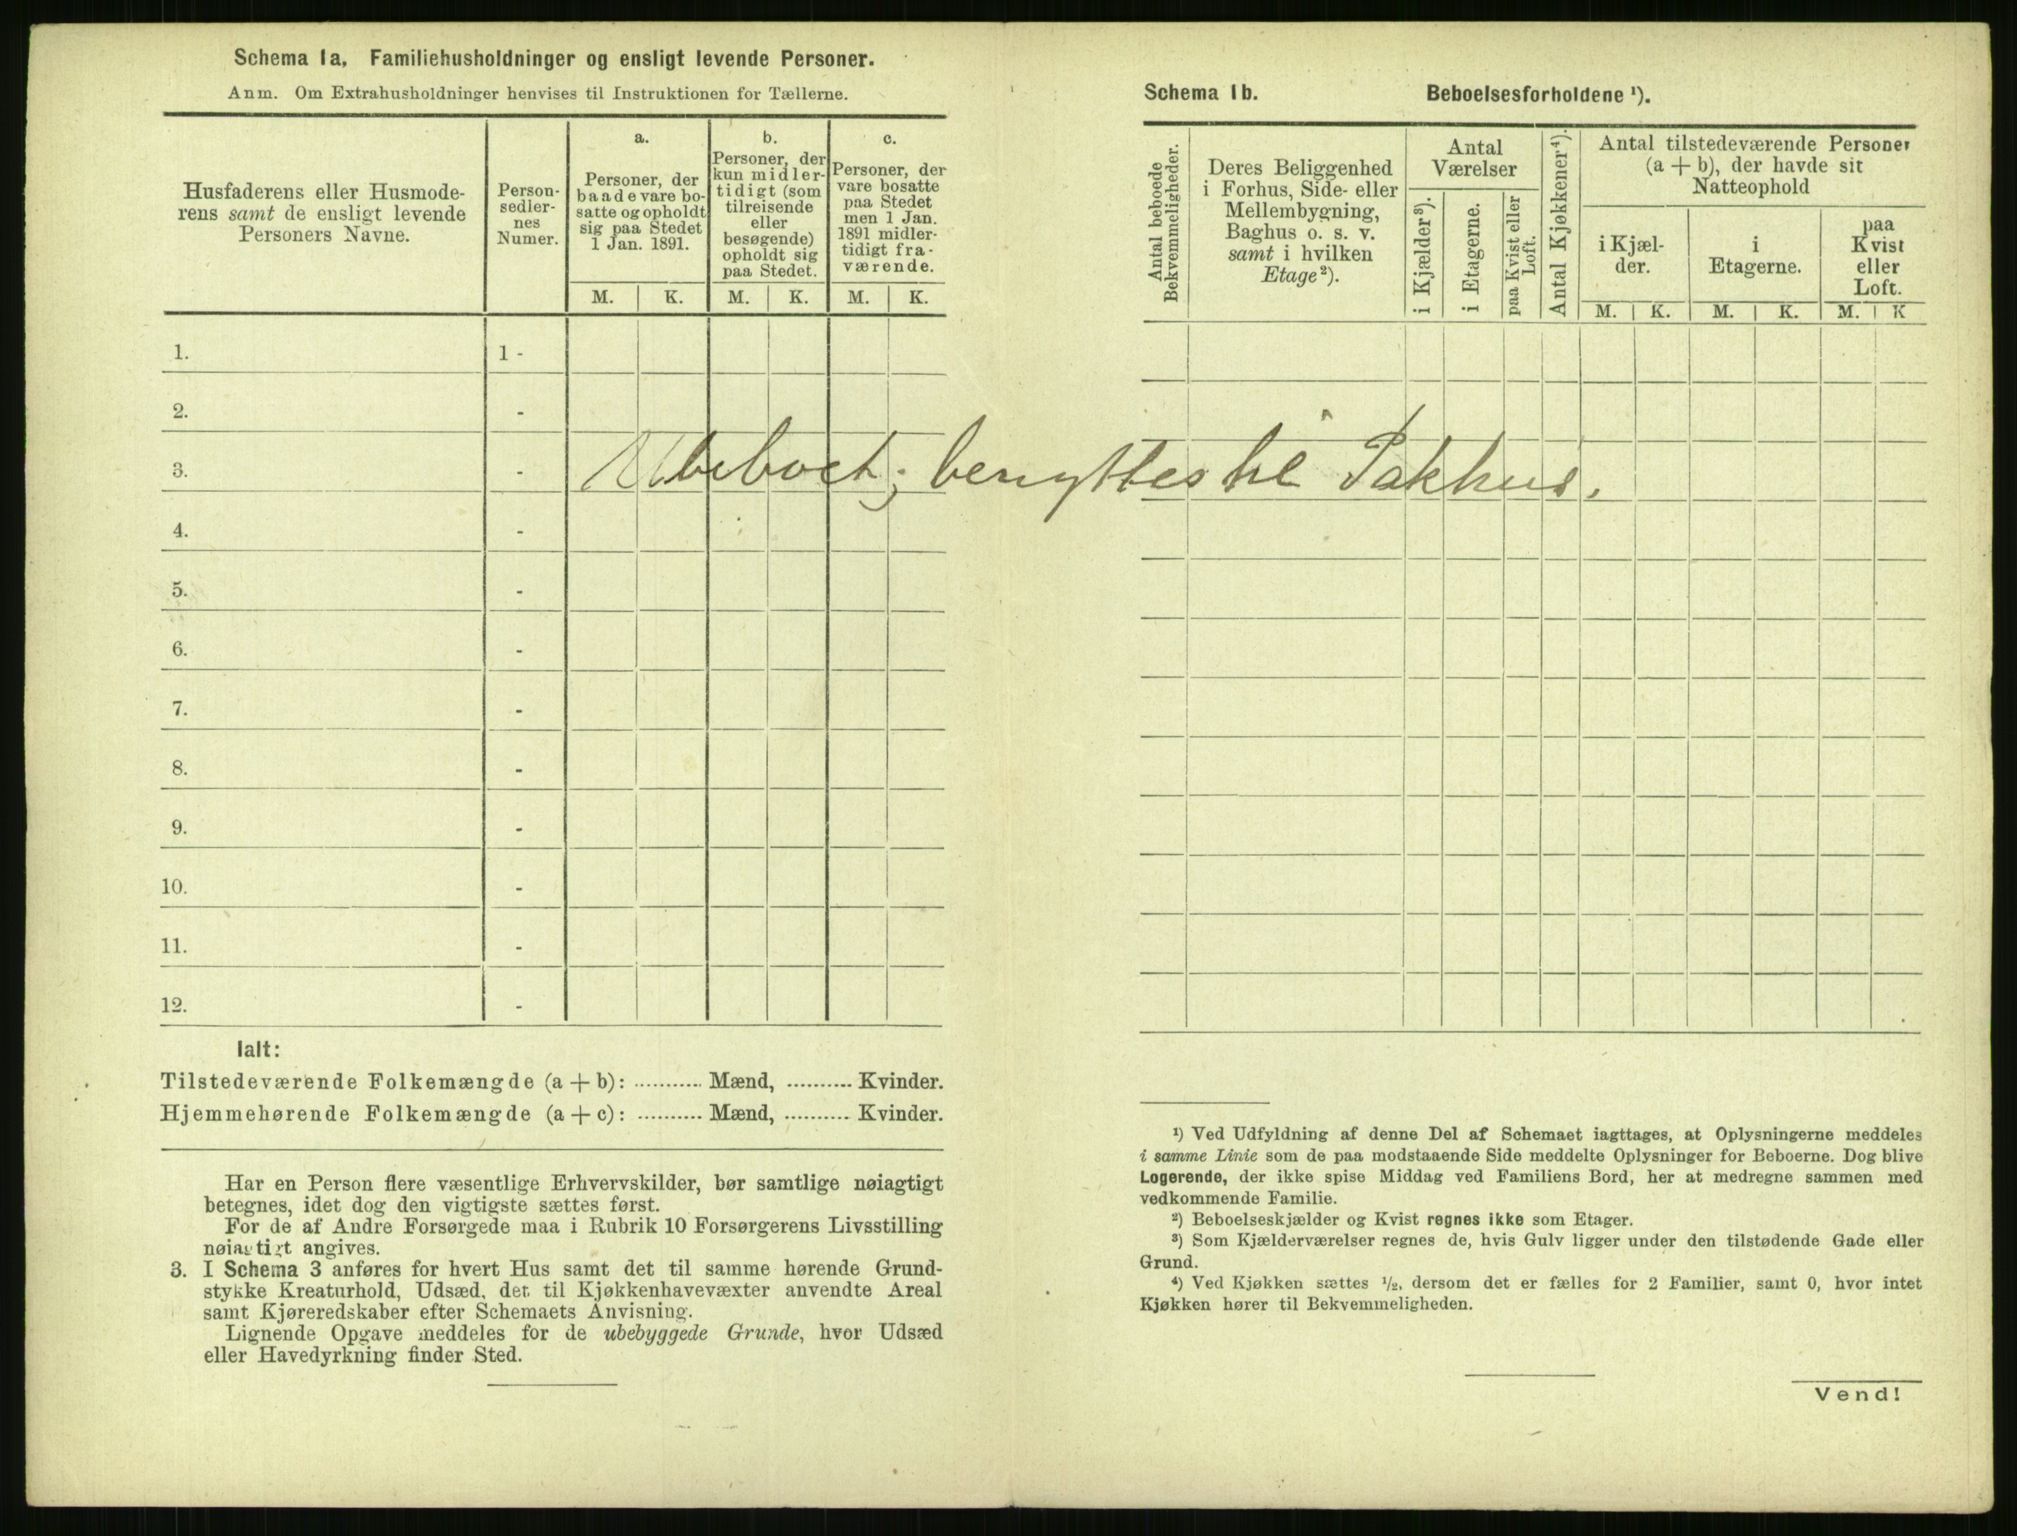 Schema 1a. Familiehusholdninger og ensligt levende Personer.
Anm. Om Extrahusholdninger henvises til Instruktionen for Tællerne.
Husfaderens eller Husmode-
rens samt de ensligt levende
Personers Navne.
Person-
sedler-
nes
Numer.
a.
Personer, der
baade vare bo-
satte og opholdt
sig paa Stedet
1 Jan. 1891.
b.
Personer, der
kun midler-
tidigt (som
tilreisende
eller
besøgende)
opholdt sig
paa Stedet.
c.
Personer, der
vare bosatte
paa Stedet
men 1 Jan.
1891 midler-
tidigt fra-
værende.
M. K. M. K. M. K.
1. 1 -
2. -
3. -
4. -
5. -
6. -
7. -
8. -
9. -
10. -
11. -
12. -
Ubeboet; benyttes til Pakhus.
Ialt:
Tilstedeværende Folkemængde (a + b): ........... Mænd, ........... Kvinder.
Hjemmehørende Folkemængde (a + c): ........... Mænd, ........... Kvinder.
Har en Person flere væsentlige Erhvervskilder, bør samtlige nøiagtigt
betegnes, idet dog den vigtigste sættes først.
For de af Andre Forsørgede maa i Rubrik 10 Forsørgerens Livsstilling
nøiagtigt angives.
3. I Schema 3 anføres for hvert Hus samt det til samme hørende Grund-
stykke Kreaturhold, Udsæd, det til Kjøkkenhavevæxter anvendte Areal
samt Kjøreredskaber efter Schemaets Anvisning.
Lignende Opgave meddeles for de ubebyggede Grunde, hvor Udsæd
eller Havedyrkning finder Sted.
Schema 1b. Beboelsesforholdene ¹).
Antal beboede
Bekvemmeligheder.
Deres Beliggenhed
i Forhus, Side- eller
Mellembygning,
Baghus o. s. v.
samt i hvilken
Etage²).
Antal
Værelser
i Kjælder³).
i Etagerne.
paa Kvist eller
Loft.
Antal Kjøkkener⁴).
Antal tilstedeværende Personer
(a + b), der havde sit
Natteophold
i Kjæl-
der.
i
Etagerne.
paa
Kvist
eller
Loft.
M. K. M. K. M. K
¹) Ved Udfyldning af denne Del af Schemaet iagttages, at Oplysningerne meddeles
i samme Linie som de paa modstaaende Side meddelte Oplysninger for Beboerne. Dog blive
Logerende, der ikke spise Middag ved Familiens Bord, her at medregne sammen med
vedkommende Familie.
²) Beboelseskjælder og Kvist regnes ikke som Etager.
³) Som Kjælderværelser regnes de, hvis Gulv ligger under den tilstødende Gade eller
Grund.
⁴) Ved Kjøkken sættes ½, dersom det er fælles for 2 Familier, samt 0, hvor intet
Kjøkken hører til Bekvemmeligheden.
Vend!